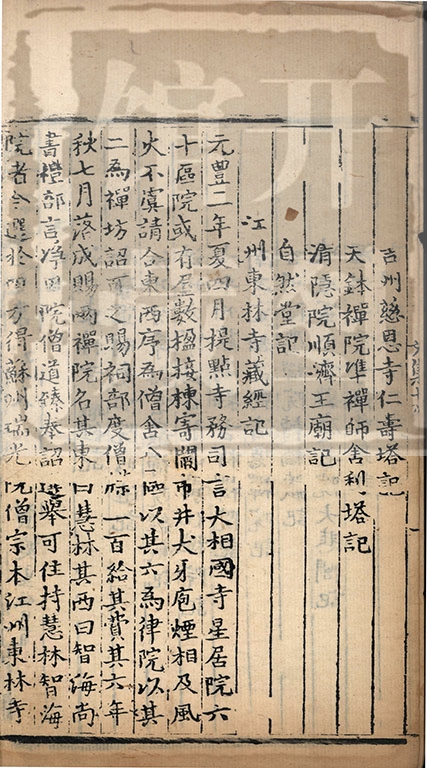 吉州慈恩寺仁壽塔記
天鉢禪院準禪師舍利塔記
清隱院順濟王廟記
自然堂記
江州東林寺藏經記
元豐二年夏四月提點寺務司言大相國寺星居院六
十區院或有屋數楹接棟寄闌市井犬牙庖煙相及風
火不虞請合東西序為僧舍八區以其六為律院以其
二為禪坊詔可之賜祠部度僧牒一百給其費其六年
秋七月落成賜兩禪院名其東曰慧林其西曰智海尚
書禮部言淨因院僧道臻奉詔選舉可住持慧林智海
院者今選於四方得蘇州瑞光院僧宗本江州東林寺